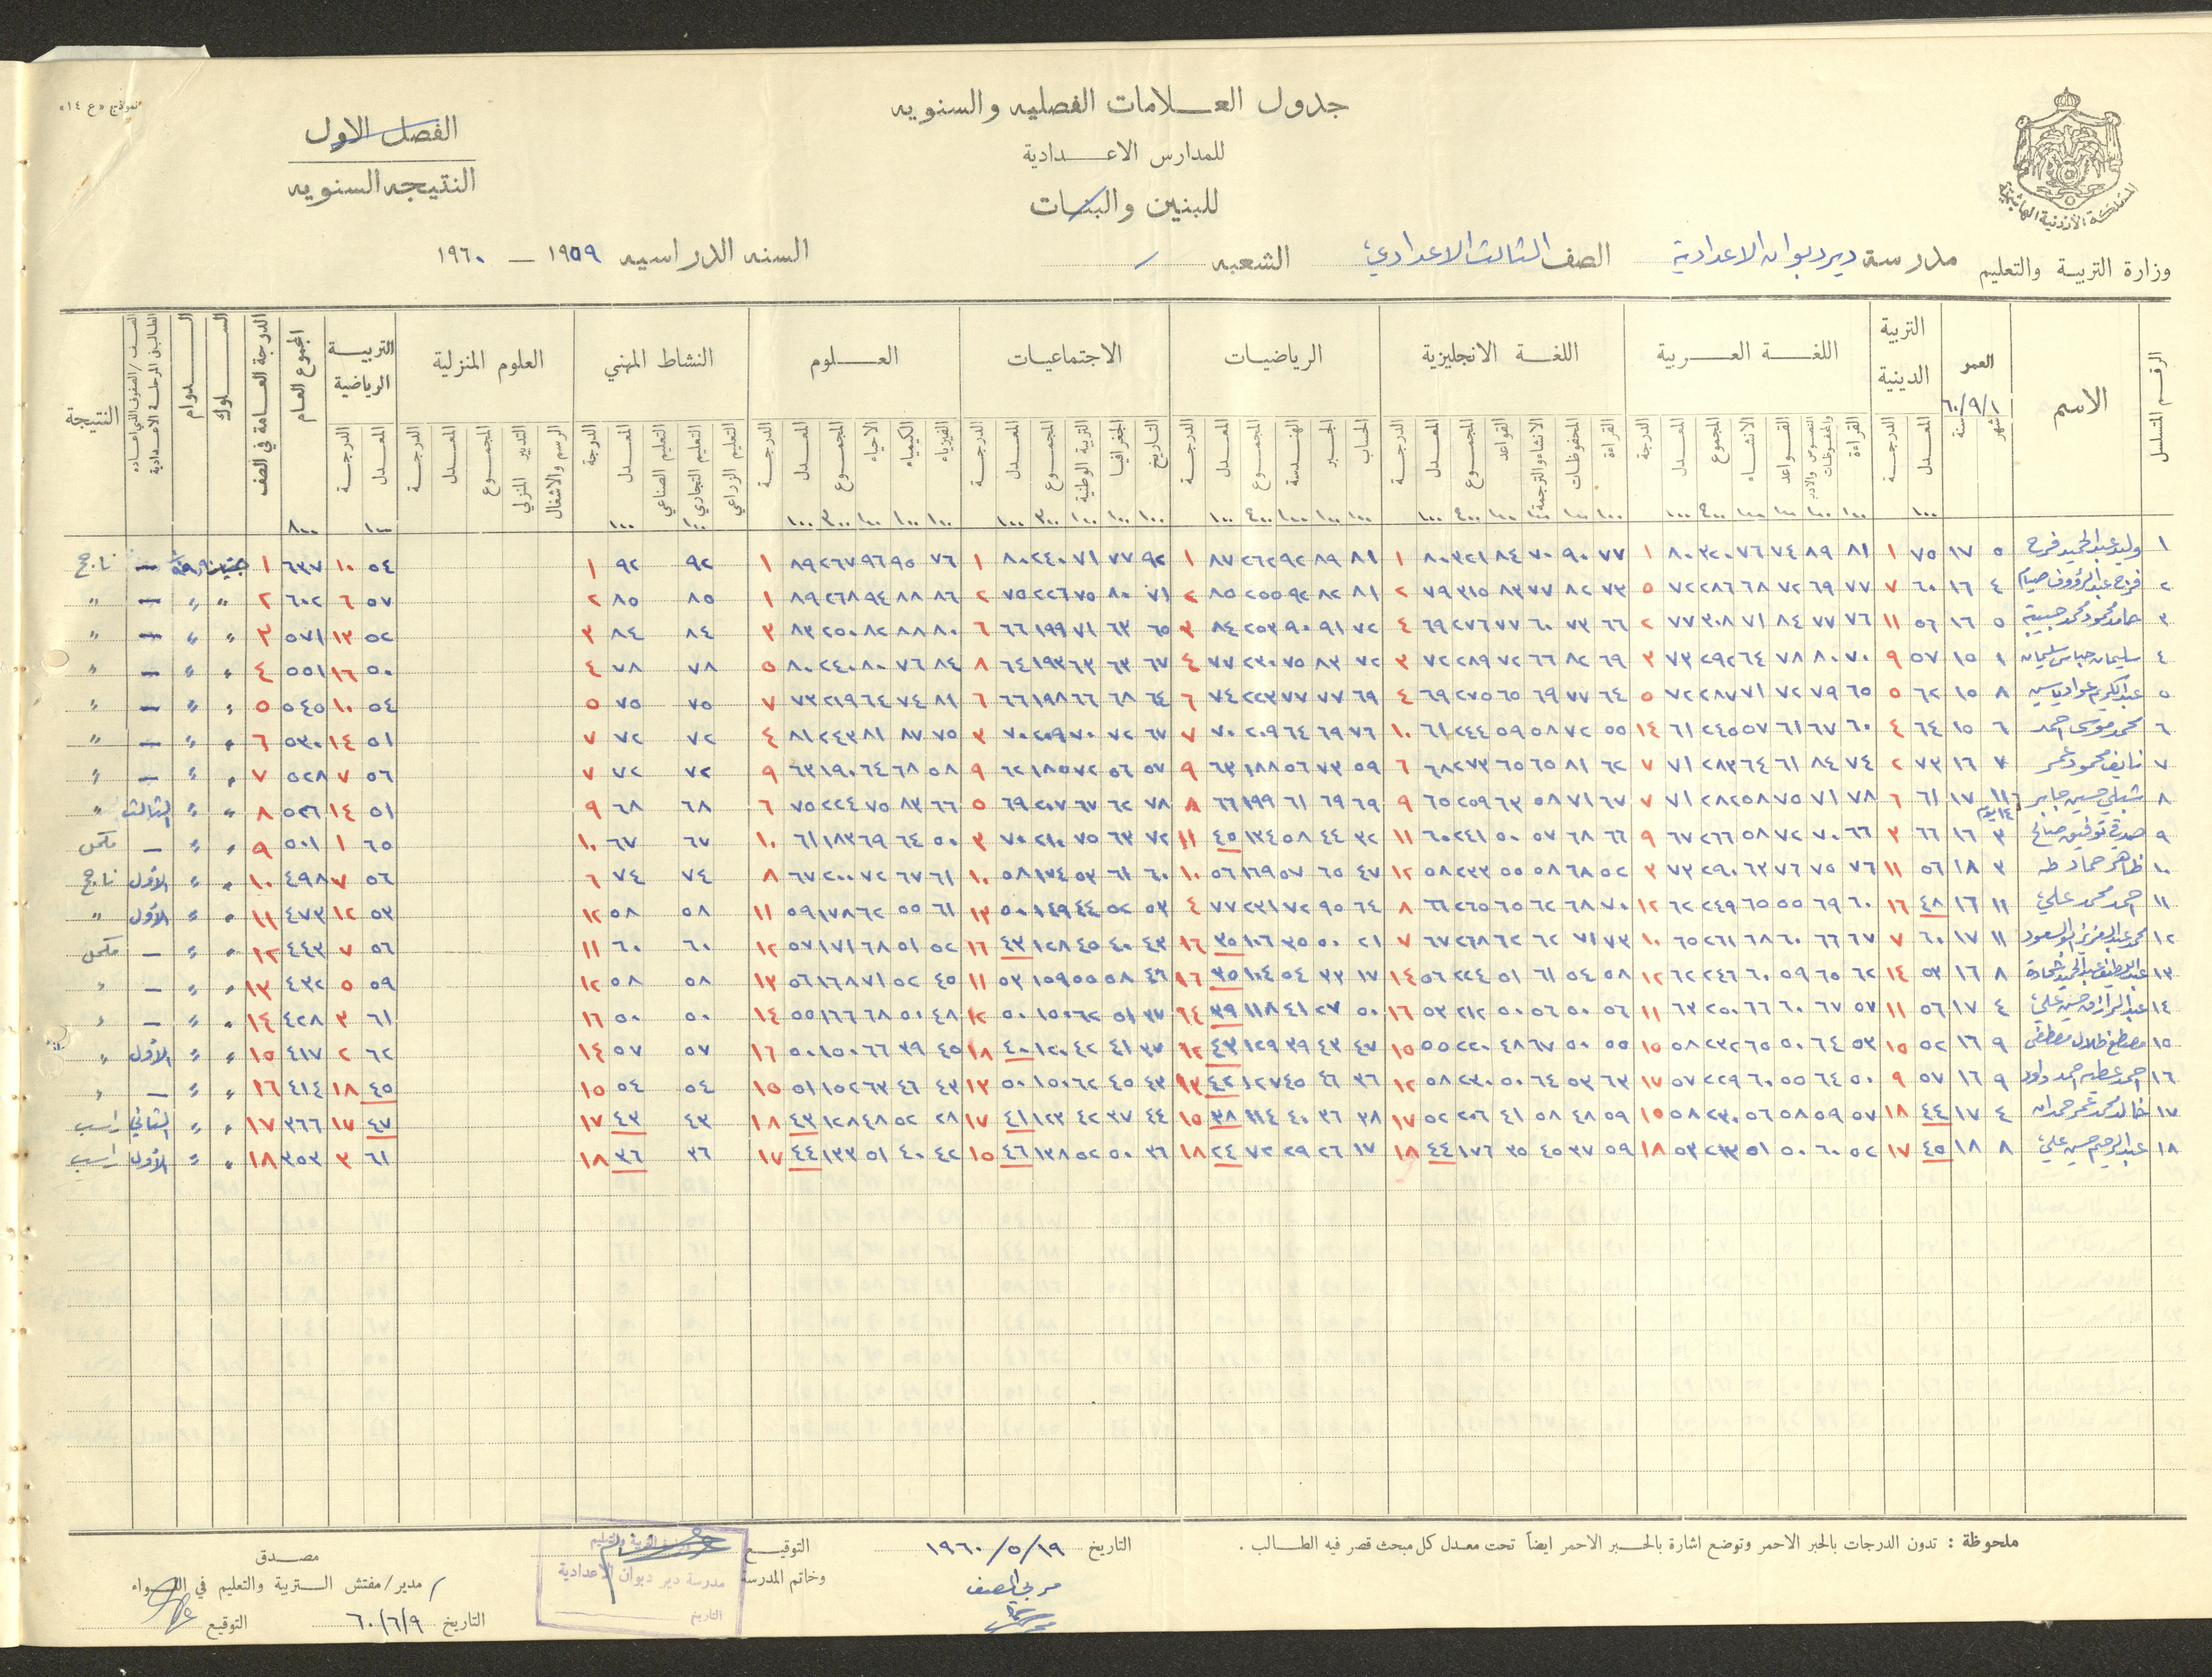 نموذج «ع ١٤»
جدول العـــلامات الفصليه والسنويه
للمدارس الاعـــدادية
للبنين والبنات
الفصل الاول
النتيجه السنويه
المملكة الأردنية الهاشمية
وزارة التربية والتعليم
مدرسة ديردبوان الاعدادية الصف الثالث الاعدادي الشعبه / السنه الدراسيه ١٩٥٩ – ١٩٦٠
الرقم المتسلسل الاسم العمر ٦٠/٩/١ شهر سنة التربية الدينية اللغـــة العـــربية اللغـــة الانجليزية الرياضيـات الاجتماعيـات العـــلوم النشاط المهني العلوم المنزلية التربيـة الرياضية المجموع العـام الدرجة العـامة في الصف الســـلوك الـــدوام النتيجة
المعـدل الدرجـة
القراءة القـواعد الانشـاء المجموع المعـدل الدرجة
القراءة المحفوظات الانشاء والترجمة القواعد المجمـوع المعـدل الدرجـة
الحساب الجـبر الهندسة المجمـوع المعـدل الدرجـة
التـاريخ الجغرافيا التربية الوطنية المجمـوع المعـدل الدرجـة
الفيزياء الكيمياء الاحياء المجمـوع المعـدل الدرجـة
التعليم الزراعي التعليم التجاري التعليم الصناعي المعـدل الدرجة
الرسم والاشغال التدبير المنزلي المجمـوع المعـدل الدرجـة
المعـدل الدرجـة
١ وليد عبد الحميد فرح ٥ ١٧ ٧٥ ١ ٨١ ٨٩ ٧٤ ٧٦ ٣٢٠ ٨٠ ١ ٧٧ ٩٠ ٧٠ ٨٤ ٣٢١ ٨٠ ١ ٨١ ٨٩ ٩٢ ٢٦٢ ٨٧ ١ ٩٢ ٧٧ ٧١ ٢٤٠ ٨٠ ١ ٧٦ ٩٥ ٩٦ ٢٦٧ ٨٩ ١ ٩٢ ٩٢ ١ ٥٤ ١٠ ٦٣٧ ١ — ناجح
٢ فرح عبد الرؤوف صيام ٤ ١٦ ٦٠ ٧ ٧٧ ٦٩ ٧٢ ٦٨ ٢٨٦ ٧٢ ٥ ٧٣ ٨٢ ٧٧ ٨٣ ٣١٥ ٧٩ ٢ ٨١ ٨٢ ٩٢ ٢٥٥ ٨٥ ٢ ٧١ ٨٠ ٧٥ ٢٢٦ ٧٥ ٢ ٨٦ ٨٨ ٩٤ ٢٦٨ ٨٩ ١ ٨٥ ٨٥ ٢ ٥٧ ٦ ٦٠٢ ٢ " " — "
٣ حامد محمود محمد حبيبة ٥ ١٦ ٥٦ ١١ ٧٦ ٧٧ ٨٤ ٧١ ٣٠٨ ٧٧ ٢ ٦٦ ٧٣ ٦٠ ٧٧ ٢٧٦ ٦٩ ٤ ٧٢ ٩١ ٩٠ ٢٥٣ ٨٤ ٣ ٦٥ ٦٣ ٧١ ١٩٩ ٦٦ ٦ ٨٠ ٨٨ ٨٢ ٢٥٠ ٨٣ ٣ ٨٤ ٨٤ ٣ ٥٢ ١٣ ٥٧١ ٣ " " — "
٤ سليمان عباس سليمان ١ ١٥ ٥٧ ٩ ٧٠ ٨٠ ٧٨ ٦٤ ٢٩٢ ٧٣ ٣ ٦٩ ٨٢ ٦٦ ٧٢ ٢٨٩ ٧٢ ٣ ٧٢ ٨٣ ٧٥ ٢٣٠ ٧٧ ٤ ٦٧ ٦٣ ٦٣ ١٩٣ ٦٤ ٨ ٨٤ ٧٦ ٨٠ ٢٤٠ ٨٠ ٥ ٧٨ ٧٨ ٤ ٥٠ ١٦ ٥٥١ ٤ " " — "
٥ عبد الكريم عواد ياسين ٨ ١٥ ٦٢ ٥ ٦٥ ٧٩ ٧٢ ٧١ ٢٨٧ ٧٢ ٥ ٦٤ ٧٧ ٦٩ ٦٥ ٢٧٥ ٦٩ ٤ ٦٩ ٧٧ ٧٧ ٢٢٣ ٧٤ ٦ ٦٤ ٦٨ ٦٦ ١٩٨ ٦٦ ٦ ٨١ ٧٤ ٦٤ ٢١٩ ٧٣ ٧ ٧٥ ٧٥ ٥ ٥٤ ١٠ ٥٤٥ ٥ " " — "
٦ محمد موسى احمد ٦ ١٥ ٦٤ ٤ ٦٠ ٦٧ ٦١ ٥٧ ٢٤٥ ٦١ ١٤ ٥٥ ٧٢ ٥٨ ٥٩ ٢٤٤ ٦١ ١٠ ٧٦ ٦٩ ٦٤ ٢٠٩ ٧٠ ٧ ٦٧ ٧٢ ٧٠ ٢٠٩ ٧٠ ٣ ٧٥ ٨٧ ٨١ ٢٤٣ ٨١ ٤ ٧٢ ٧٢ ٧ ٥١ ١٤ ٥٣٠ ٦ " " — "
٧ نايف محمود عمر ٧ ١٦ ٧٣ ٢ ٧٤ ٨٤ ٦١ ٦٤ ٢٨٣ ٧١ ٧ ٦٢ ٨١ ٦٥ ٦٥ ٢٧٣ ٦٨ ٦ ٥٩ ٧٣ ٥٦ ١٨٨ ٦٣ ٩ ٥٧ ٥٦ ٧٢ ١٨٥ ٦٢ ٩ ٥٨ ٦٨ ٦٤ ١٩٠ ٦٣ ٩ ٧٢ ٧٢ ٧ ٥٦ ٧ ٥٢٨ ٧ " " — "
٨ شبلي حسين جابر ١١ ١٧ ٦١ ٦ ٧٨ ٧١ ٧٥ ٥٨ ٢٨٢ ٧١ ٧ ٦٧ ٧١ ٥٨ ٦٣ ٢٥٩ ٦٥ ٩ ٦٩ ٦٩ ٦١ ١٩٩ ٦٦ ٨ ٧٨ ٦٢ ٦٧ ٢٠٧ ٦٩ ٥ ٦٦ ٨٣ ٧٥ ٢٢٤ ٧٥ ٦ ٦٨ ٦٨ ٩ ٥١ ١٤ ٥٢٦ ٨ " " الثالث "
٩ صدقي توفيق صالح ٣ ١٦ ٦٦ ٣ ٦٦ ٧٠ ٧٢ ٥٨ ٢٦٦ ٦٧ ٩ ٦٦ ٦٨ ٥٧ ٥٠ ٢٤١ ٦٠ ١١ ٣٢ ٤٤ ٥٨ ١٣٤ ٤٥ ١١ ٧٢ ٦٣ ٧٥ ٢١٠ ٧٠ ٣ ٥٠ ٦٤ ٦٩ ١٨٣ ٦١ ١٠ ٦٧ ٦٧ ١٠ ٦٥ ١ ٥٠١ ٩ " " — مكمل
١٠ ظاهر حماد طه ٣ ١٨ ٥٦ ١١ ٧٦ ٧٥ ٧٦ ٦٣ ٢٩٠ ٧٣ ٣ ٥٢ ٦٨ ٥٨ ٥٥ ٢٣٣ ٥٨ ١٢ ٤٧ ٦٥ ٥٧ ١٦٩ ٥٦ ١٠ ٦٠ ٦١ ٥٣ ١٧٤ ٥٨ ١٠ ٦١ ٦٧ ٧٢ ٢٠٠ ٦٧ ٨ ٧٤ ٧٤ ٦ ٥٦ ٧ ٤٩٨ ١٠ " " الأول ناجح
١١ احمد محمد علي ١١ ١٦ ٤٨ ١٦ ٦٠ ٦٩ ٥٥ ٦٥ ٢٤٩ ٦٢ ١٢ ٧٠ ٦٨ ٦٢ ٦٥ ٢٦٥ ٦٦ ٨ ٦٤ ٩٥ ٧٢ ٢٣١ ٧٧ ٤ ٥٣ ٥٢ ٤٤ ١٤٩ ٥٠ ١٣ ٦١ ٥٥ ٦٢ ١٧٨ ٥٩ ١١ ٥٨ ٥٨ ١٢ ٥٣ ١٢ ٤٧٣ ١١ " " الأول "
١٢ محمد عبد العزيز ابو السعود ١١ ١٧ ٦٠ ٧ ٦٧ ٦٦ ٦٠ ٦٨ ٢٦١ ٦٥ ١٠ ٧٣ ٧١ ٦٢ ٦٢ ٢٦٨ ٦٧ ٧ ٢١ ٥٠ ٣٥ ١٠٦ ٣٥ ١٦ ٤٣ ٤٠ ٤٥ ١٢٨ ٤٣ ١٦ ٥٢ ٥١ ٦٨ ١٧١ ٥٧ ١٢ ٦٠ ٦٠ ١١ ٥٦ ٧ ٤٤٣ ١٢ " " — مكمل
١٣ عبد اللطيف عبد الحميد شحادة ٨ ١٦ ٥٣ ١٤ ٦٢ ٦٥ ٥٩ ٦٠ ٢٤٦ ٦٢ ١٢ ٥٨ ٥٤ ٦١ ٥١ ٢٢٤ ٥٦ ١٤ ١٧ ٣٣ ٥٤ ١٠٤ ٣٥ ١٦ ٤٦ ٥٨ ٥٥ ١٥٩ ٥٣ ١١ ٤٥ ٥٢ ٧١ ١٦٨ ٥٦ ١٣ ٥٨ ٥٨ ١٢ ٥٩ ٥ ٤٣٢ ١٣ " " — "
١٤ عبد الرازق حسين علي ٤ ١٧ ٥٦ ١١ ٥٧ ٦٧ ٦٠ ٦٦ ٢٥٠ ٦٣ ١١ ٥٦ ٥٠ ٥٦ ٥٠ ٢١٢ ٥٣ ١٦ ٥٠ ٢٧ ٤١ ١١٨ ٣٩ ١٤ ٣٧ ٥١ ٦٢ ١٥٠ ٥٠ ١٢ ٤٨ ٥٠ ٦٨ ١٦٦ ٥٥ ١٤ ٥٠ ٥٠ ١٦ ٦١ ٣ ٤٢٨ ١٤ " " — "
١٥ مصطفى طلال مصطفى ٩ ١٦ ٥٢ ١٥ ٥٣ ٦٤ ٥٠ ٦٥ ٢٣٢ ٥٨ ١٥ ٥٥ ٥٠ ٦٧ ٤٨ ٢٢٠ ٥٥ ١٥ ٤٧ ٤٣ ٣٩ ١٢٩ ٤٣ ١٢ ٣٧ ٤١ ٤٢ ١٢٠ ٤٠ ١٨ ٤٥ ٣٩ ٦٦ ١٥٠ ٥٠ ١٦ ٥٧ ٥٧ ١٤ ٦٢ ٢ ٤١٧ ١٥ " " الأول "
١٦ احمد عطيه احمد داود ٩ ١٦ ٥٧ ٩ ٥٠ ٦٤ ٥٥ ٦٠ ٢٢٩ ٥٧ ١٧ ٦٣ ٥٣ ٦٤ ٥٠ ٢٣٠ ٥٨ ١٢ ٣٦ ٤٦ ٤٥ ١٢٧ ٤٢ ١٣ ٤٣ ٤٥ ٦٢ ١٥٠ ٥٠ ١٣ ٤٣ ٤٦ ٦٣ ١٥٢ ٥١ ١٥ ٥٤ ٥٤ ١٥ ٤٥ ١٨ ٤١٤ ١٦ " " — "
١٧ خالد محمد عمر حمدان ٤ ١٧ ٤٤ ١٨ ٥٧ ٥٩ ٥٨ ٥٦ ٢٣٠ ٥٨ ١٥ ٥٩ ٤٨ ٥٨ ٤١ ٢٠٦ ٥٢ ١٧ ٣٨ ٣٦ ٤٠ ١١٤ ٣٨ ١٥ ٤٤ ٣٧ ٤٢ ١٢٣ ٤١ ١٧ ٢٨ ٥٢ ٤٨ ١٢٨ ٤٣ ١٨ ٤٣ ٤٣ ١٧ ٤٧ ١٧ ٣٦٦ ١٧ " " الثاني راسب
١٨ عبد الرحيم حسين علي ٨ ١٨ ٤٥ ١٧ ٥٢ ٦٠ ٥٠ ٥١ ٢١٣ ٥٣ ١٨ ٥٩ ٣٧ ٤٥ ٣٥ ١٧٦ ٤٤ ١٨ ١٧ ٢٦ ٢٩ ٧٢ ٢٤ ١٨ ٣٦ ٥٠ ٥٢ ١٣٨ ٤٦ ١٥ ٤٢ ٤٠ ٥١ ١٣٣ ٤٤ ١٧ ٣٦ ٣٦ ١٨ ٦١ ٣ ٣٥٣ ١٨ " " الأول راسب
ملحوظة : تدون الدرجات بالحبر الاحمر وتوضع اشارة بالحـبر الاحمر ايضاً تحت معـدل كل مبحث قصر فيه الطـالب .
التاريخ ١٩٦٠/٥/١٩
مربي الصف
التوقيـع
وخاتم المدرسة
وزارة التربية والتعليم
مدرسة دير دبوان الاعدادية
التاريخ
مصـدق
مدير/مفتش الـتربية والتعليم في اللـواء
التاريخ ٦٠/٦/٩ التوقيع